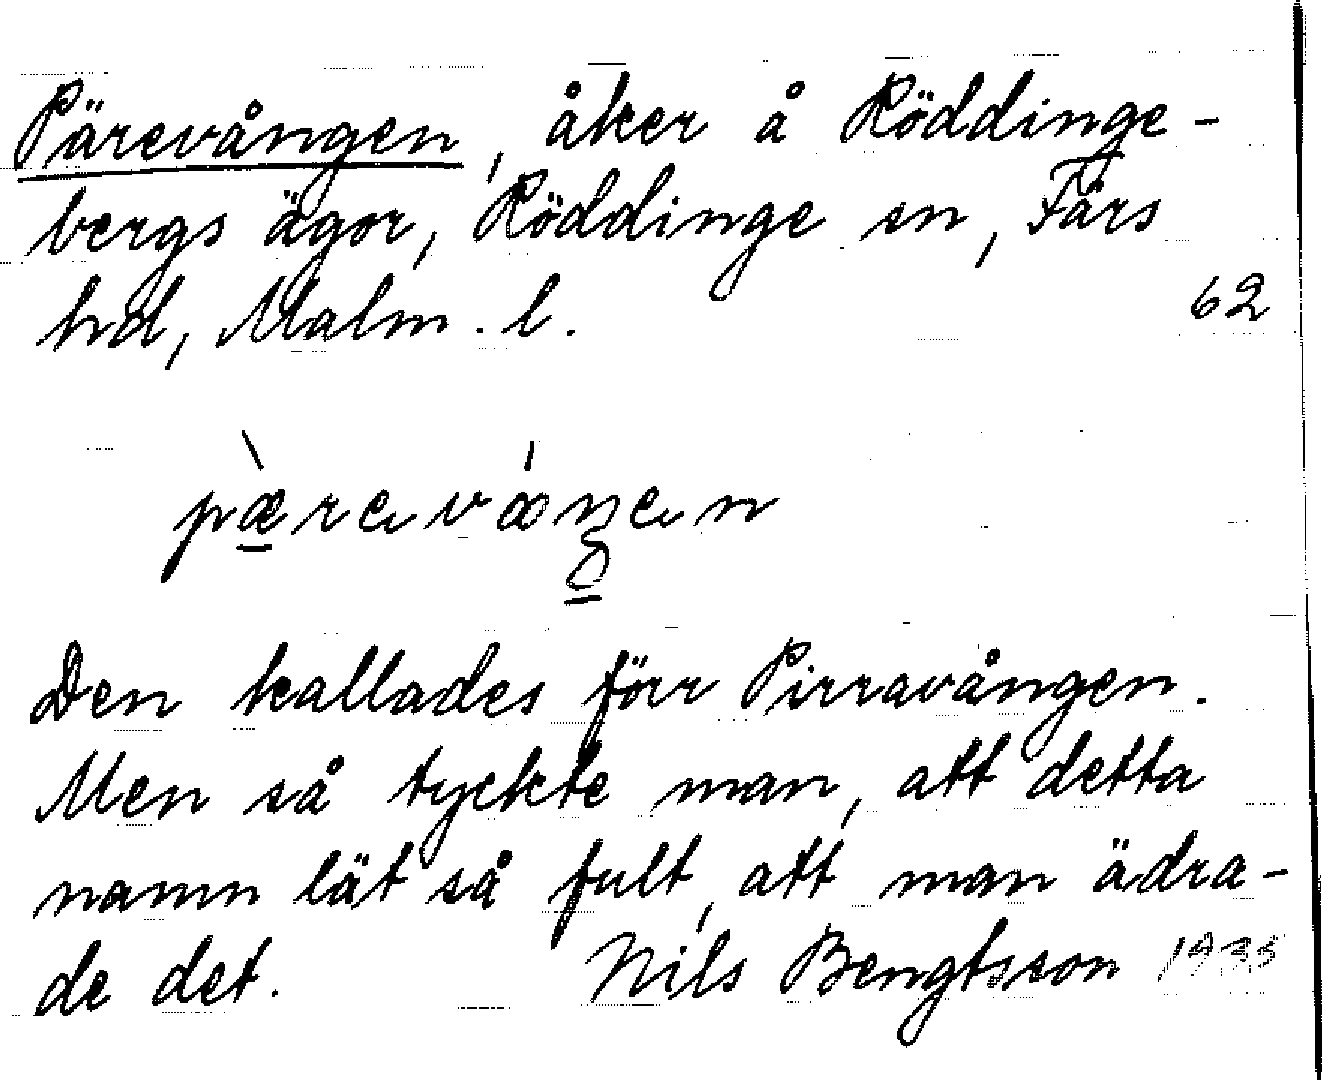 Pärevången, åker å Röddinge-
bergs ägor, Röddinge sn, Färs
hd, Malm. l.
62
pæ̀revåŋen
Den kallades förr Pirravången.
Men så tyckte man, att detta
namn lät så fult, att man ädra-
de det. Nils Bengtsson 1935